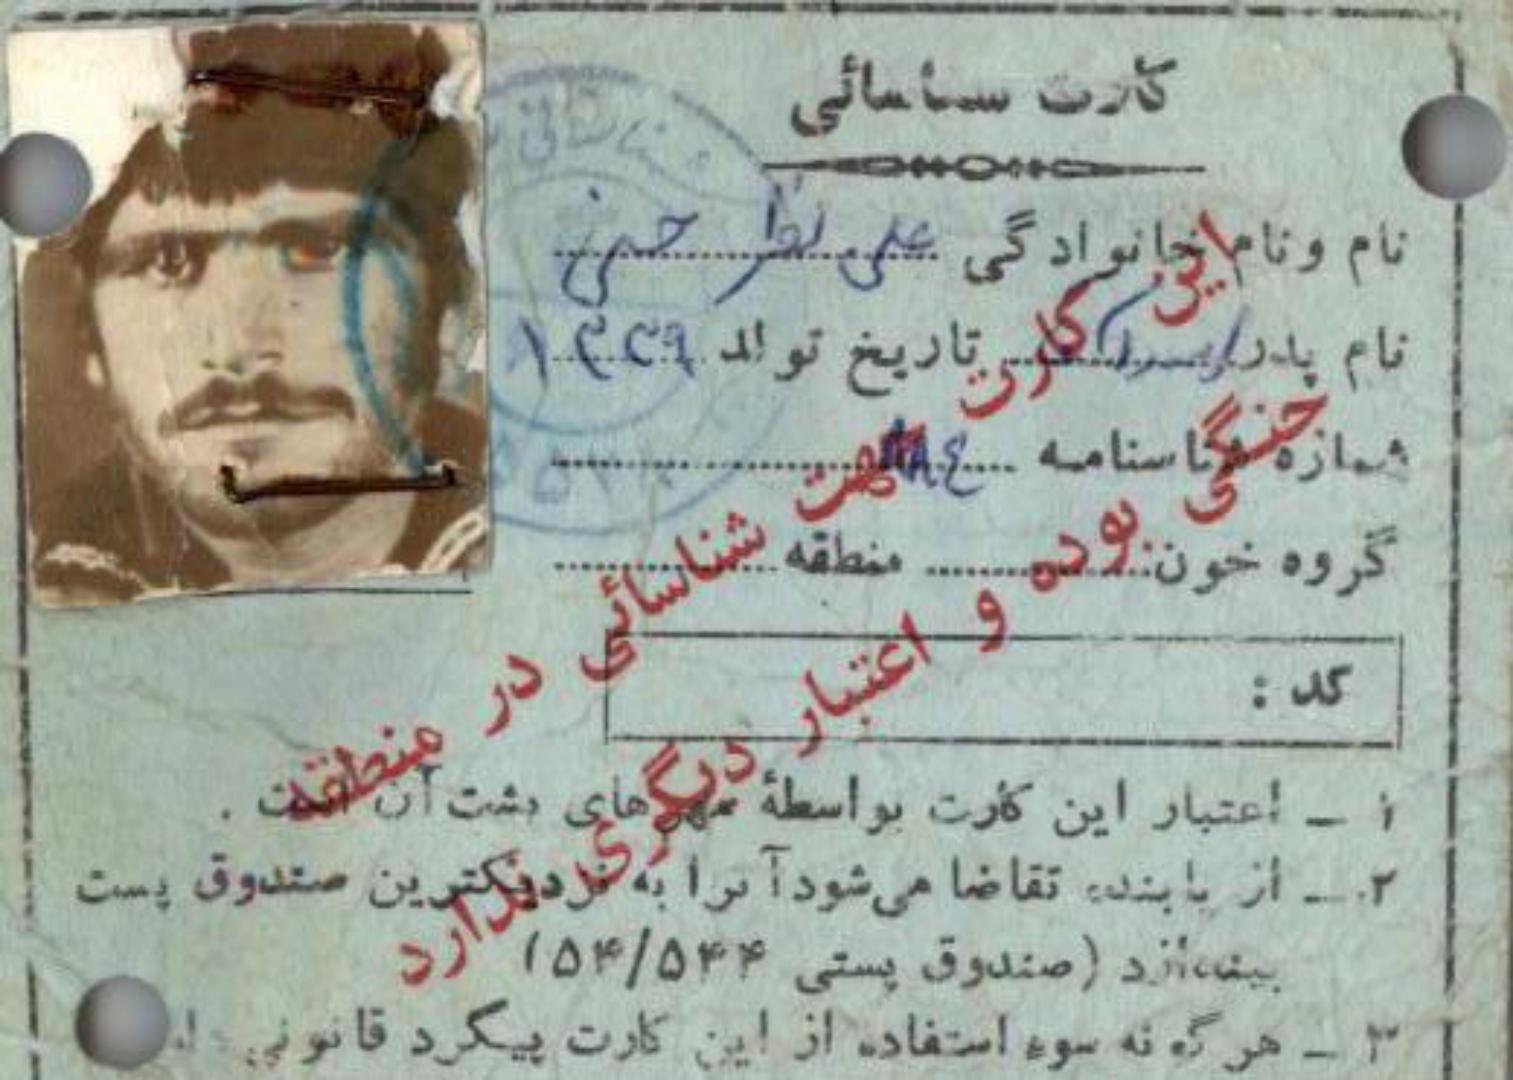 کارت شناسائی
نام و نام خانوادگی علی نظر حسنی
نام پدر تاریخ تولد ۱۳۳۹
شماره شناسنامه
گروه خون منطقه
کد :
۱ – اعتبار این کارت بواسطهٔ مهرهای پشت آن است .
۲ – از یابنده تقاضا می‌شود آنرا به نزدیکترین صندوق پست
بیندازد (صندوق پستی ۵۴/۵۴۴)
۳ – هر گونه سوء استفاده از این کارت پیگرد قانونی
این کارت جهت شناسائی در منطقه
جنگی بوده و اعتبار دیگری ندارد